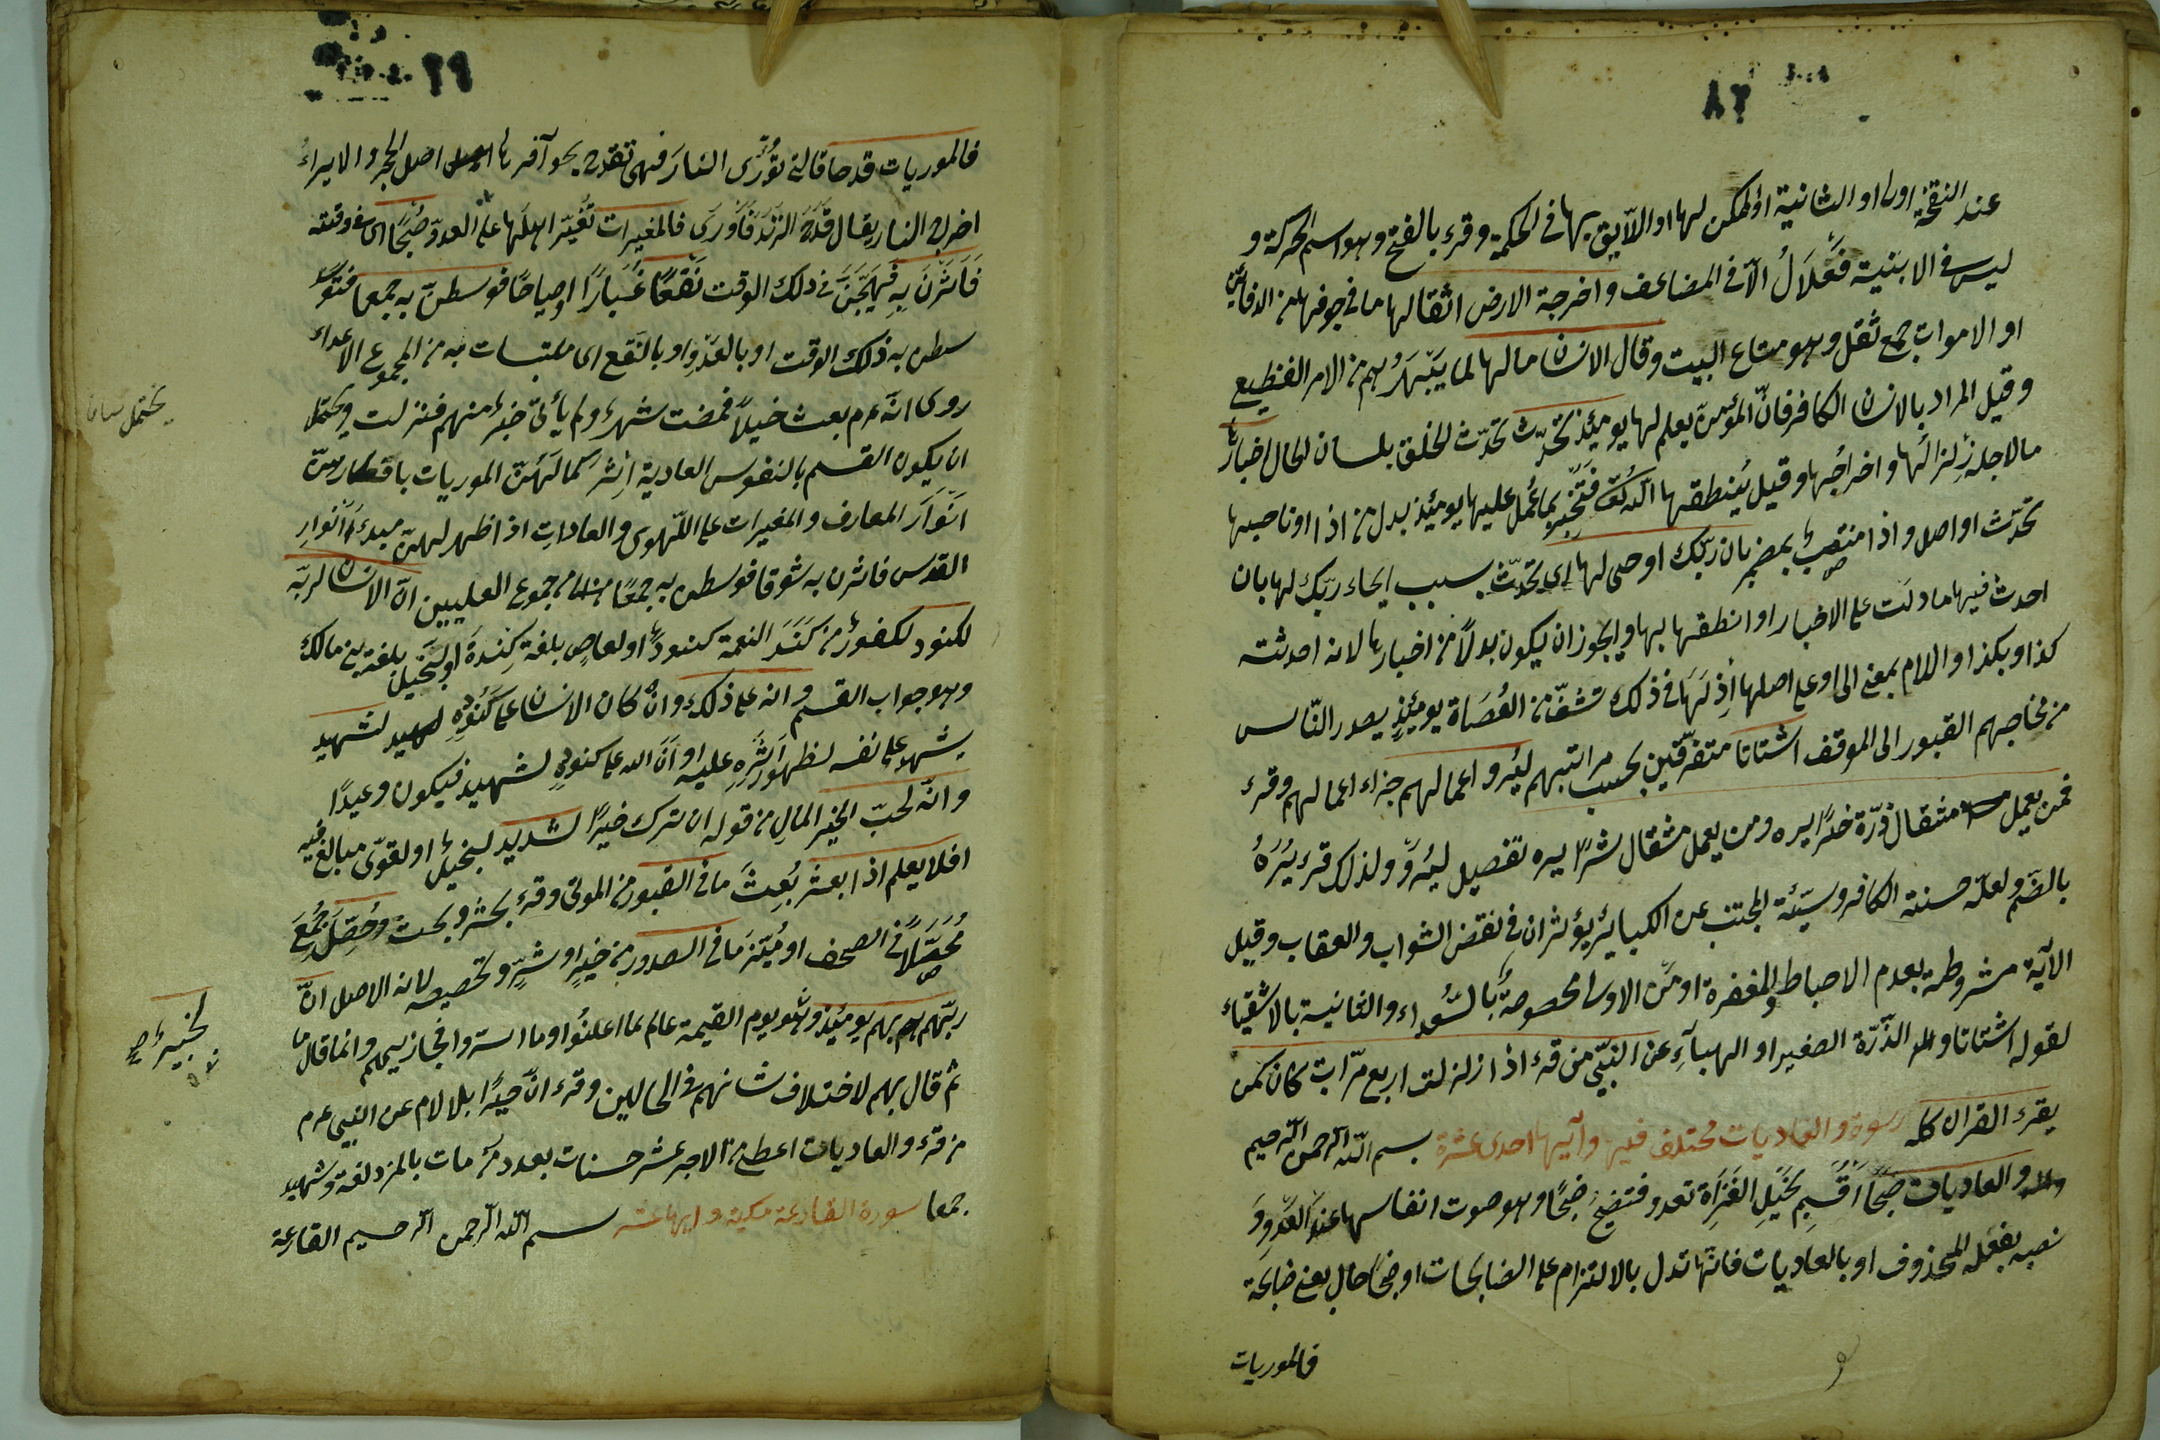 ٨٢
عند النفخة اولى او الثانية او الممكن لها او اللايق بها فى الحكمة وقرء بالفتح وهو اسم الحركة و
ليس فى الابنية فَعْلَال الا فى المضاعف واخرجة الارض اثقالها ما فى جوفها من الدفائن
او الاموات جمع ثقل وهو متاع البيت وقال الانسان مالها لما يَبْهَرُهم من الامر الفظيع
وقيل المراد بالانسان الكافر فانّ المؤمن يعلم لها يومئذ تحدّث تحدّث الخلق بلسان الحال اخبارها
مالاجله زلزالها واخراجها وقيل يُنطقها الله فتخبر بما عُمل عليها يومئذ بدل من اذا او ناصبها
تحدّث او اصل واذا منتصب بمضمر بان ربّك اوحى لها اى تحدّث بسبب ايحاء ربّك لها بان
احدث فيها ما دلت على الاخبار او انطقها بها ويجوز ان يكون بدلاً من اخبارها لانه احدثته
كذا وبكذا واللام بمعنى الى او على اصلها اذ لها فى ذلك تشفّ من العُصَاة يومئذٍ يصدر النّاس
من مخاجهم القبور الى الموقف اشتاتا متفرّقين بحسب مراتبهم ليُرو اعمالهم جزاء اعمالهم وقرء
فمن يعمل مثقال ذرّة خيرًا يره ومن يعمل مثقال شرًا يره تفصيل ليُروَّ ولذلك قرء يُرَهُ
بالضم ولعلّ حسنة الكافر وسيّئة المجتنب عن الكبائر يؤثران فى نقض الثواب والعقاب وقيل
الآية مشروطة بعدم الاحباط والمغفرة او من الاولى مخصوصة بالسُّعداء والثانية بالاشقياء
لقوله اشتاتا والذّرّة الصغير او الهبآءِ عن النبّى من قرء اذا زلزلت اربع مرّات كان كمن
يقرء القران كله سورة والعاديات مختلف فيها وآيها احدى عشرة بسم الله الرحمن الرحيم
والعاديات ضبحًا اُقسِم بخَيلِ الغُزَاة تعدو فتضبحُ ضبحًا وهو صوت انفاسها عند العَدْوِ وَ
نصبه بفعله المحذوف او بالعاديات فانّها تدل بالالتزام على الضابحات او ضبحًا حال بمعنى ضابحة
فالموريات
٩٩
فالموريات قدحا فالتى تُوْرى النارَ فهى تقدح بحوآفرها اصل الحجر والايراءُ
اخراج النار يقال قَدَحَ الزَنَدَ فَاَورَى فالمغيرات تُغيّر اهلها على العدوّ صُبْحًا اى فى وقته
فَاَثَرْنَ بِهِ فهيّجنَ فى ذلك الوقت نَقْعًا غُبَارًا او صياحًا فوسطن به جمعا فتوسّطن
سطن به ذلك الوقت او بالعَدْوِ او بالنَقع اى ملتبسات به من المجموع الاعداء
روى انّه عم بعث خيلاً فمضت شهرء ولم يأتى خبرٌ منهم فنزلت ويحتمل
ان يكون القسم بالنفوس العادية اثر كمالهنّ الموريات بافكارهنّ
انْوَارَ المعارف والمغيرات على اللّهوى والعاداتِ اذا ظهر لهنّ مبدءُ انْوارِ
القدس فاثرن به شوقا فوسطن به جمعًا من جموع العليين انّ الانسان لربّه
لكنود لكفورٌ من كَنَدَ النعمة كنودًا او لعاصٍ بلغة كِندةَ او لبَخيلٌ بلغة بنى مالك
وهو جواب القسم وانه على ذلك وانّ كان الانسان على كَنُودِهِ لشهيد
يشهد على نفسه لظهور اَثَرِهِ عليه او اَنَّ الله على كنودِهٍ لشهيد فيكون وعيدًا
وانّه لحبّ الخير المالِ من قوله ان ترك خيرًا لشديد لبخيلٌ او لقوّى مبالغ فيه
افلا يعلم اذا بعثر بُعِثَ ما فى القبور من الموتى وقرءُ بحثر وبحث وحُصِّلَ جُمِعَ
مُحَصَّلاً فى الصحف او مُيّزَ ما فى الصدور من خيرٍ او شرٍّ وتخصيصه لانه الاصل انّ
ربّهم بهم يومئذ وهو يوم القيمة عالم بما اعلنُوا وما اسرّوا فيجازيهم وانما قال ما
ثم قال بهم لاختلاف شانهم فى الحالين وقرء انّ خبيرًا بلا لام عن النبى عم
من قرء والعاديات اعطى من الاجر عشر حسنات بعدد من مات بالمزدلفة وشهد
جمعا سورة القارعة مكية وايها عشر بسم الله الرحمن الرحيم القارعة
يحتمل
لخبيرٌ صح